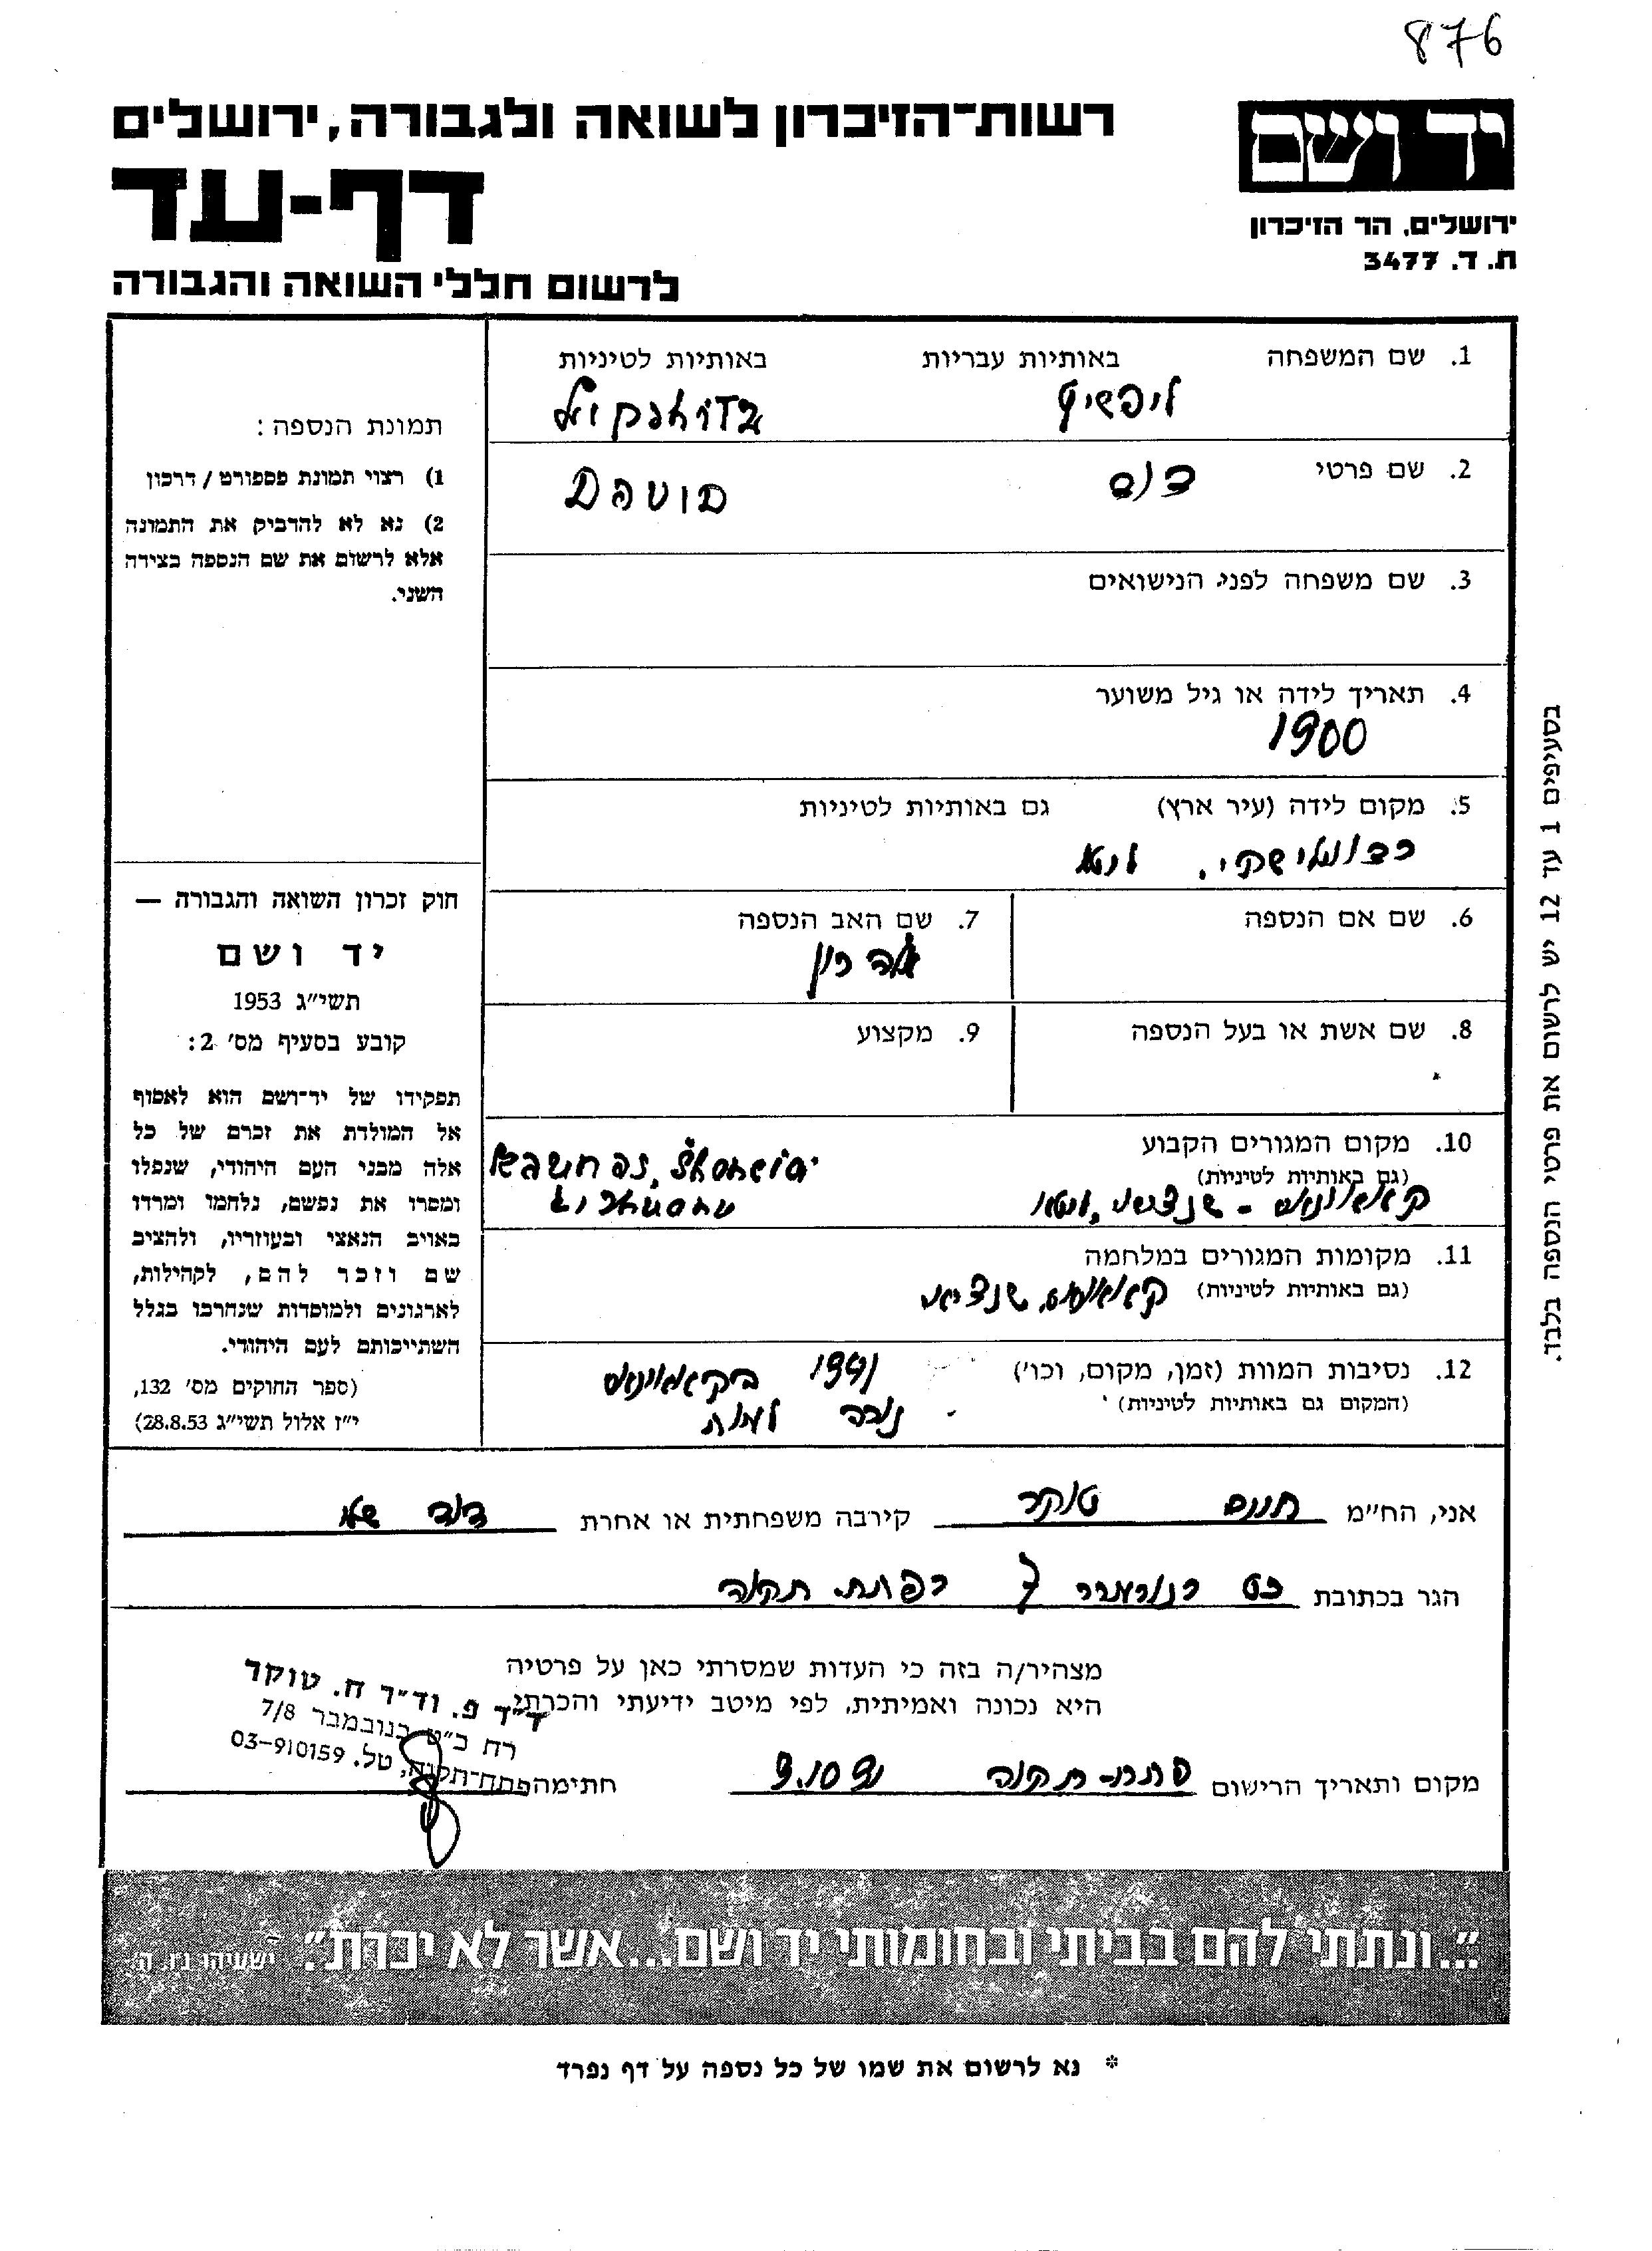 876
רשות־הזיכרון לשואה ולגבורה, ירושלים
יד ושם
דף-עד
ירושלים, הר הזיכרון
ת. ד. 3477
לרשום חללי השואה והגבורה
1. שם המשפחה באותיות עבריות באותיות לטיניות
ליפשיץ
2. שם פרטי
3. שם משפחה לפני הנישואים
4. תאריך לידה או גיל משוער
1900
5. מקום לידה (עיר ארץ) גם באותיות לטיניות
ליטא
6. שם אם הנספה
7. שם האב הנספה
8. שם אשת או בעל הנספה
9. מקצוע
10. מקום המגורים הקבוע
(גם באותיות לטיניות)
11. מקומות המגורים במלחמה
(גם באותיות לטיניות)
12. נסיבות המוות (זמן, מקום, וכו')
(המקום גם באותיות לטיניות)
1941
נורה למות
תמונת הנספה:
1) רצוי תמונת פספורט / דרכון
2) נא לא להדביק את התמונה
אלא לרשום את שם הנספה בצידה
השני.
חוק זכרון השואה והגבורה —
יד ושם
תשי״ג 1953
קובע בסעיף מס׳ 2:
תפקידו של יד־ושם הוא לאסוף
אל המולדת את זכרם של כל
אלה מבני העם היהודי, שנפלו
ומסרו את נפשם, נלחמו ומרדו
באויב הנאצי ובעוזריו, ולהציב
שם וזכר להם, לקהילות,
לארגונים ולמוסדות שנחרבו בגלל
השתייכותם לעם היהודי.
(ספר החוקים מס׳ 132,
י״ז אלול תשי״ג 28.8.53)
בסעיפים 1 עד 12 יש לרשום את פרטי הנספה בלבד.
אני, הח״מ טוקר קירבה משפחתית או אחרת
הגר בכתובת כט בנובמבר 7 פתח תקוה
מצהיר/ה בזה כי העדות שמסרתי כאן על פרטיה
היא נכונה ואמיתית, לפי מיטב ידיעתי והכרתי
ד״ר פ. וד״ר ח. טוקר
רח כ״ט בנובמבר 7/8
פתח־תקוה, טל. 03-910159
מקום ותאריך הרישום פתח-תקוה חתימה
״...ונתתי להם בביתי ובחומותי יד ושם...אשר לא יכרת״. ישעיהו נ״ו, ה׳
* נא לרשום את שמו של כל נספה על דף נפרד